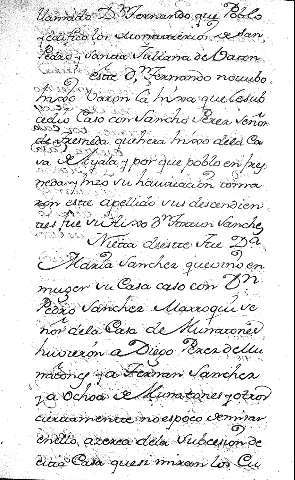 llamado Dn. Fernando que Poblo
y edifico los Monasterios de San
Pedro y Santa Juliana de
este Dn. Fernando no tubo
hixo varon la hixa que le sub
cedio Caso con Sancho Perez Señor
de que hera hixo de la Ca
sa de Ayala y por que poblo en
y hizo su havitacion toma
ron este apellido sus descendien
tes fue su Hixo Dn. Sanchez
Nieta de este fue Da.
Maria Sanchez que vino en
muger su Casa caso con Dn.
Pedro Sanchez Marroqui Se
ñor de la Casa de Muñatones
huvieron a Diego Perez de Mu
ñatones y a Fernan Sanchez
y a Ochoa de Muñatones y otros
ciertamente no es poco de mirar
en ello, azerca de la Subcesion de
dicha Casa que si miran los Cu